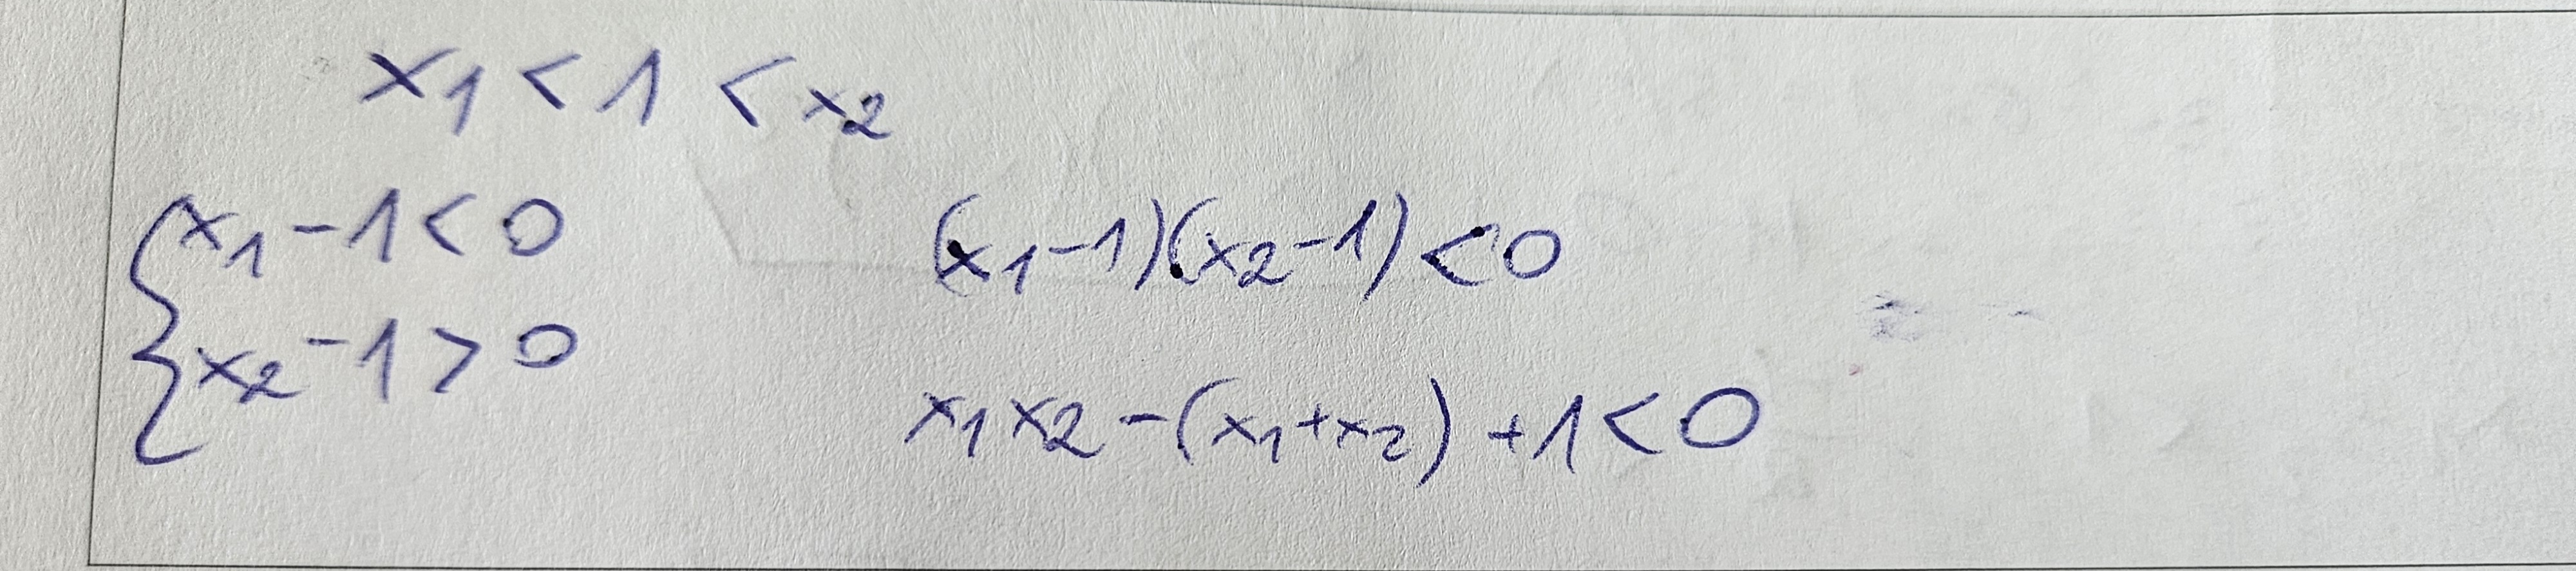 x₁ < 1 < x₂
{ x₁ - 1 < 0
(x₁ - 1)(x₂ - 1) < 0
x₂ - 1 > 0
x₁x₂ - (x₁ + x₂) + 1 < 0